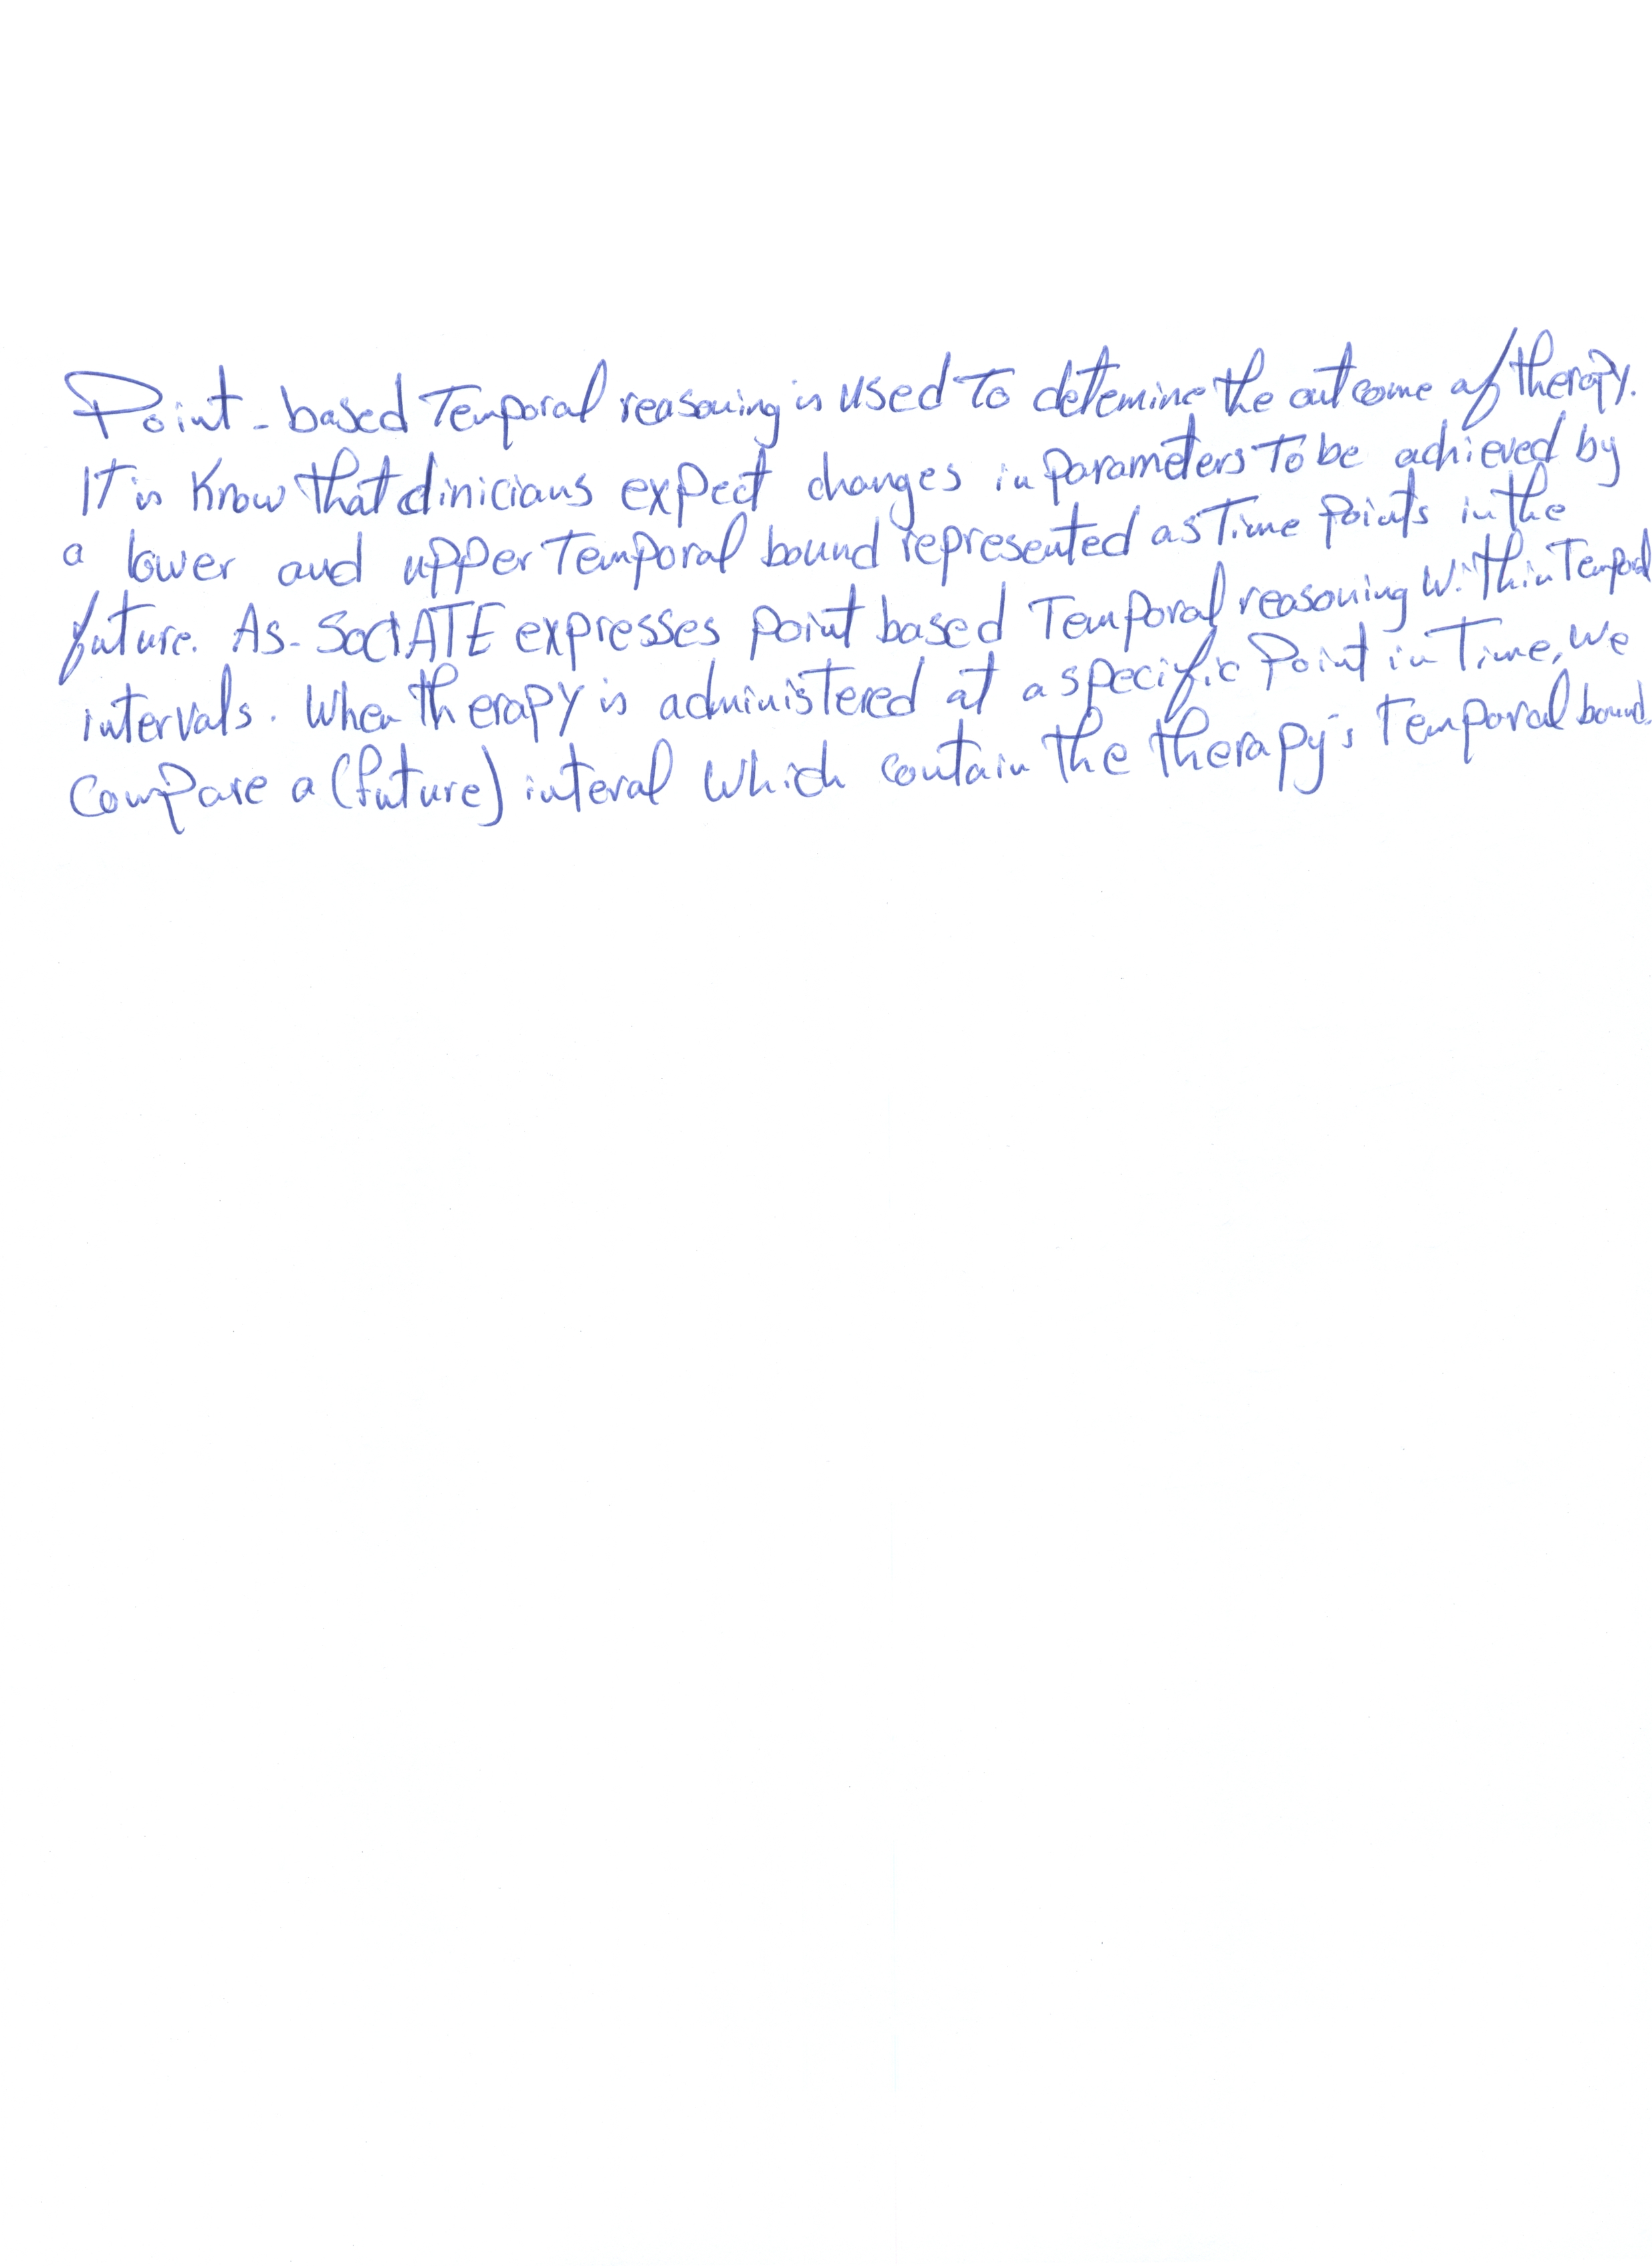 Point-based Temporal reasoning is used to detemine the outcome of therapy.
It is know that clinicians expect changes in parameters to be achieved by
a lower and upper Temporal bound represented as Time points in the
future. As-SociATE expresses point based Temporal reasoning within Tempoal
intervals. When therapy is administered at a specific Point in Time, we
compare a (future) interal which contain the therapy's Temporal bound.